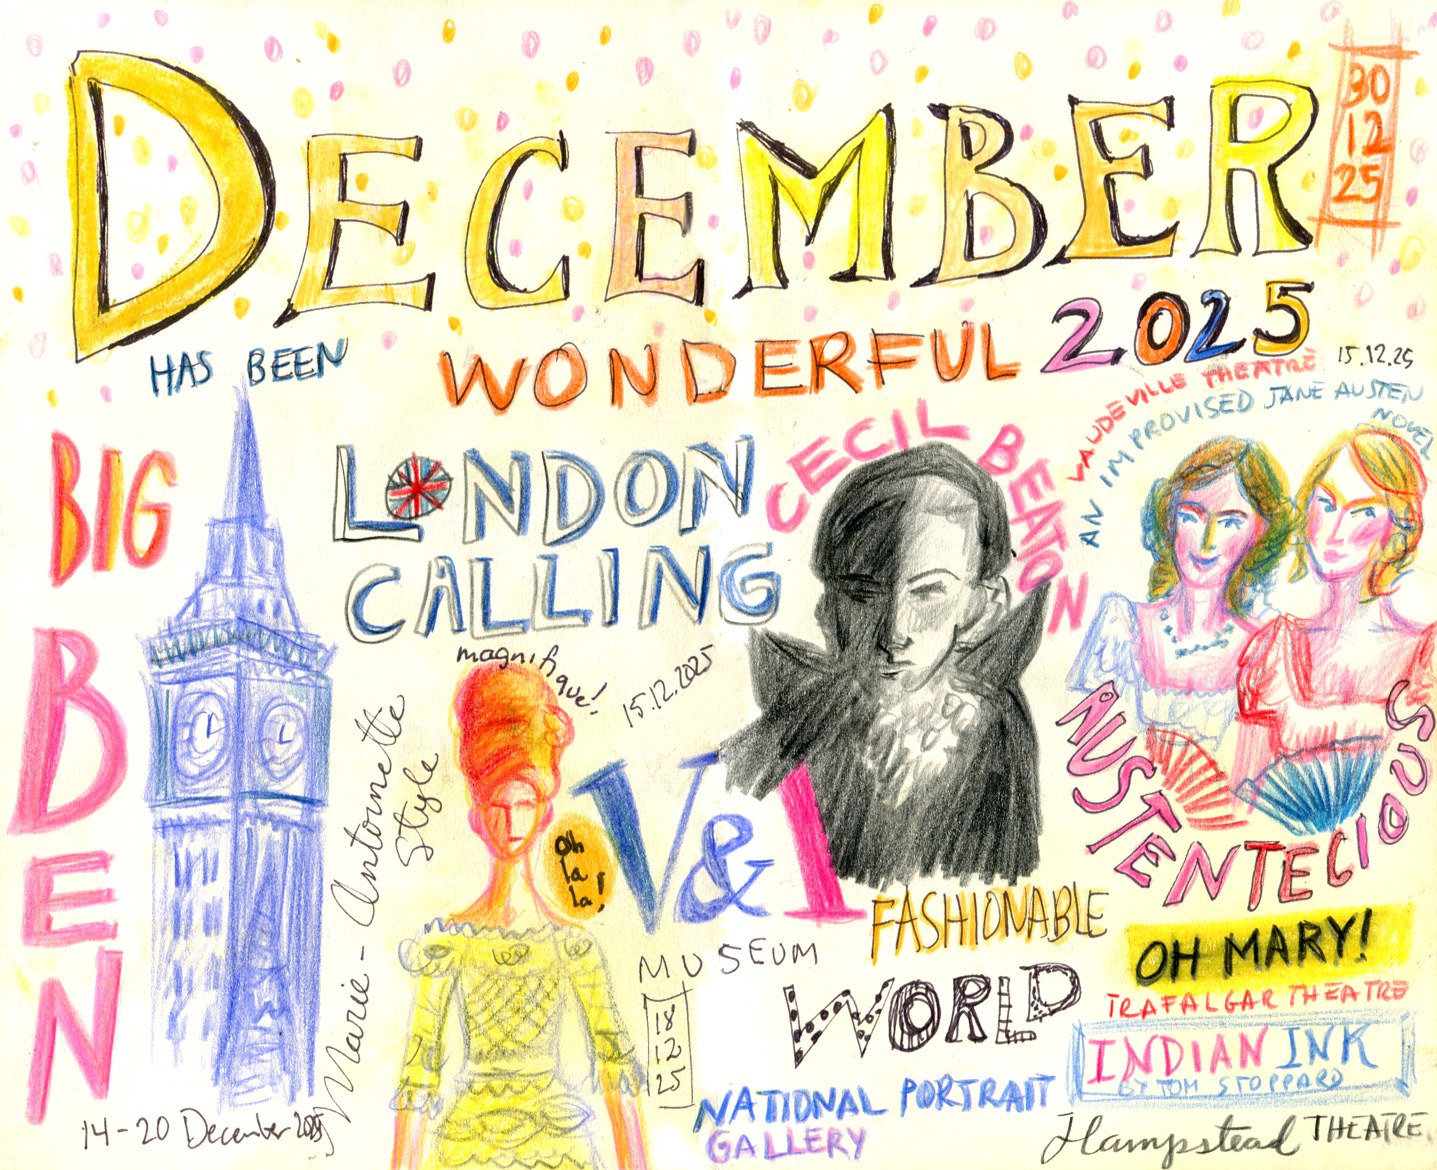 DECEMBER
30
12
25
HAS BEEN
WONDERFUL
2025
15.12.25
BIG
BEN
14-20 December 2025
LONDON
CALLING
magnifique!
15.12.2025
Marie-Antoinette
Style
Oh
la
la!
V&A
MUSEUM
18
12
25
CECIL BEATON
FASHIONABLE
WORLD
NATIONAL PORTRAIT
GALLERY
VAUDEVILLE THEATRE
AN IMPROVISED JANE AUSTEN
NOVEL
AUSTENTECIOUS
OH MARY!
TRAFALGAR THEATRE
INDIAN INK
BY TOM STOPPARD
Hampstead THEATRE